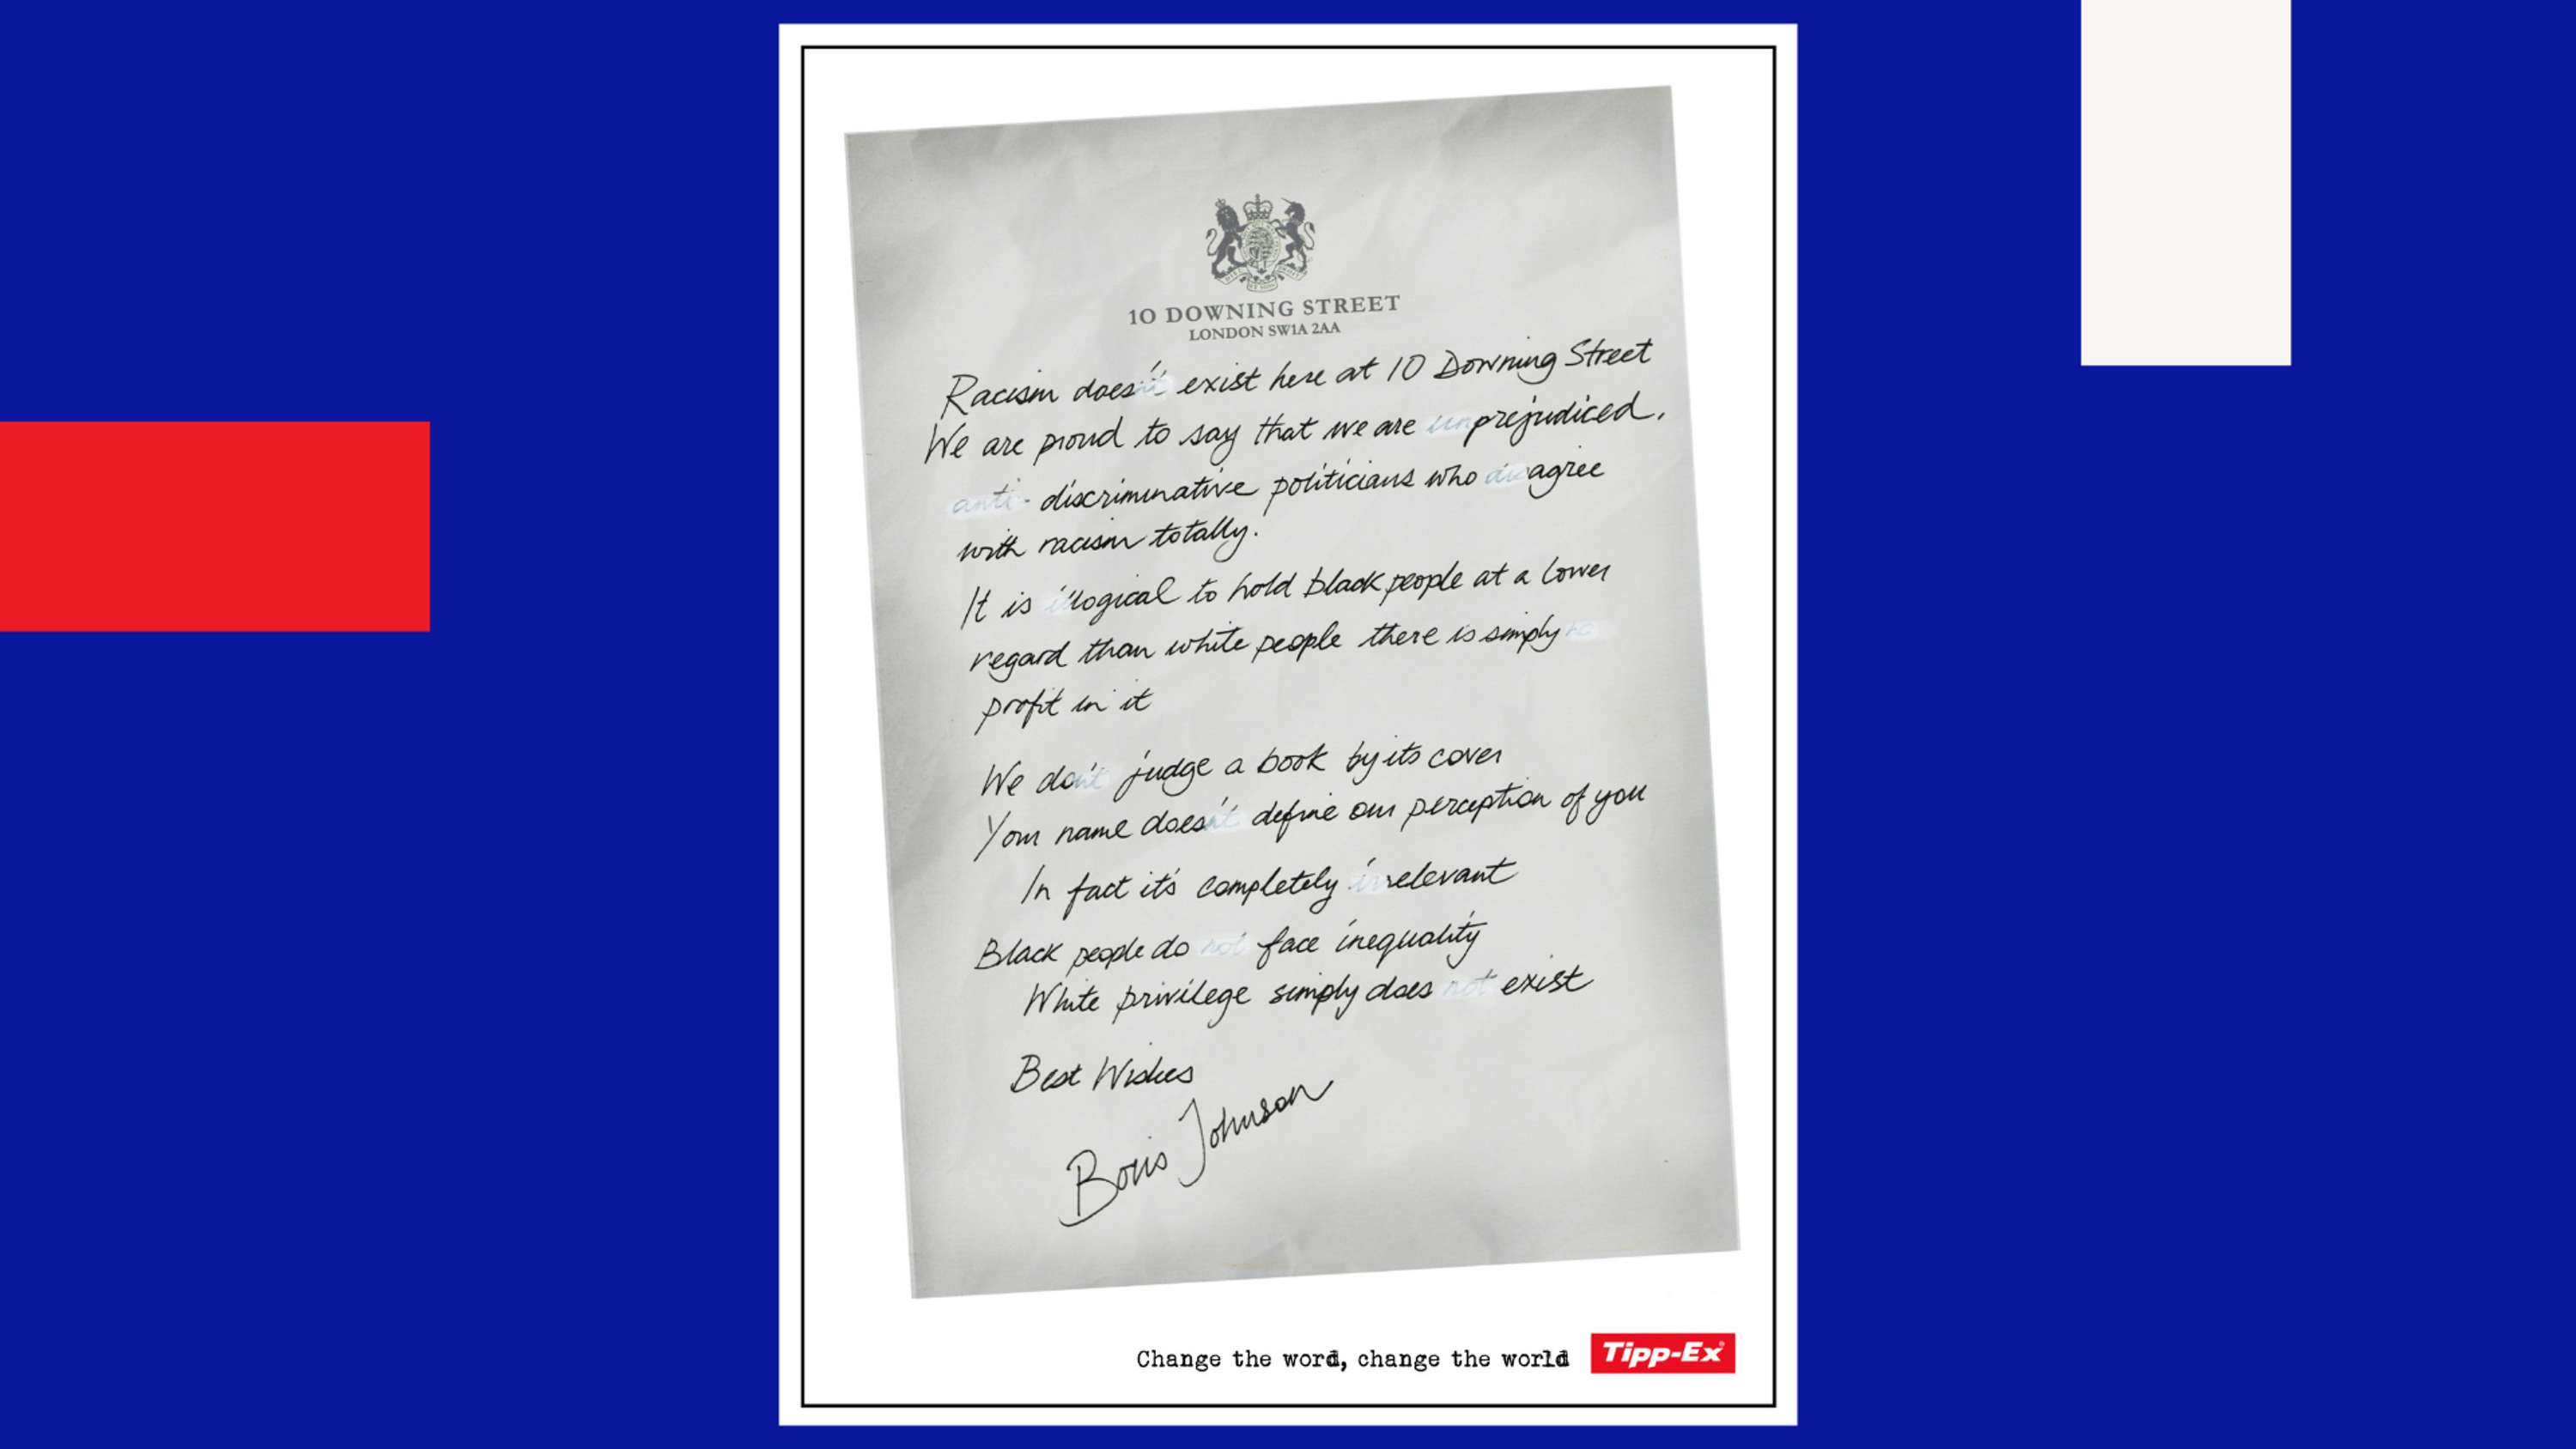 10 DOWNING STREET
LONDON SW1A 2AA
Racism doesn't exist here at 10 Downing Street
We are proud to say that we are unprejudiced.
anti-discriminative politicians who disagree
with racism totally.
It is illogical to hold black people at a lower
regard than white people there is simply no
profit in it
We don't judge a book by its cover
Your name doesn't define our perception of you
In fact it's completely irrelevant
Black people do not face inequality
White privilege simply does not exist
Best Wishes
Boris Johnson
Change the word, change the world
Tipp-Ex